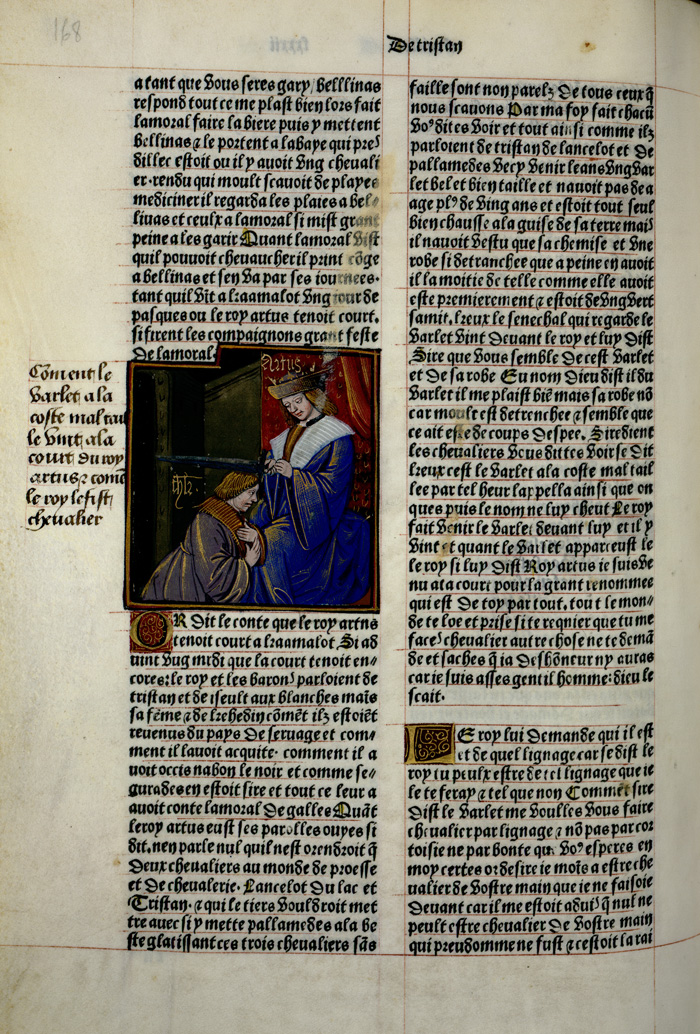 168
De tristan
a tant que vous seres gary / belllinas
respond tout ce me plaist bien lors fait
lamoral faire la biere puis y mettent
bellinas ⁊ le portent a labaye qui pres
dillec estoit ou il y avoit vng cheuali
er·rendu qui moult scauoit de playes
mediciner il regarda les plaies a bel-
linas et ceulx a lamoral si mist grant
peine a les garir Quant lamoral vist
quil pouuoit cheuaucher il print cōge
a bellinas et sen va par ses iournees·
tant quil vīt a kraamalot vng iour de
pasques ou le roy artus tenoit court.
si firent les compaignons grant feste
De lamoral·
Cōment le
varlet a la
coste mal tail
le vint a la
court du roy
artus ⁊ comē
le roy le fist
cheualier
Artus
OR dit le conte que le roy artus
tenoit court a kraamalot. Si ad
uint vng midi que la court tenoit en⸗
cores: le roy et les barons parloient de
tristan et de iseult aux blanches mais
sa fēme ⁊ de kehedin cōmēt ilz estoiēt
reuenus du pays de seruage et com⸗
ment il lauoit acquite· comment il a
uoit occis nabon le noir et comme se⸗
gurades en estoit sire et tout ce leur a
auoit conte lamoral De galles Quāt
le roy artus eust ses parolles ouyes si
dit. nen parle nul quil nest orendroit q̄
Deux cheualiers au monde de proesse
et de cheualerie· Lancelot Du lac et
Tristan· ⁊ qui le tiers vouldroit met
tre auec si y mette pallamedes a la be
ste glatissant ces trois cheualiers sās
faille sont non parelz De tous ceux q̄
nous scauons Par ma foy fait chacū
vo⁹ dites voir et tout ainsi comme ilz
parloient de tristan de lancelot et de
pallamedes vecy venir leans vng var
let bel et bien taille et nauoit pas de a
age pl⁹ de ving ans et estoit tout seul
bien chausse a la guise de sa terre mais
il nauoit vestu que sa chemise et vne
robe si detranchee que a peine en auoit
il la moitie de telle comme elle auoit
este premierement ⁊ estoit de vng vert
samit. kreux le senechal qui regarde le
varlet vint deuant le roy et luy dist
Sire que vous semble de cest varlet
et de sa robe En nom Dieu dist il du
varlet il me plaist biē mais sa robe nō
car moult est detrenchee ⁊ semble que
ce ait este de coups Despee. Siredient
les cheualiers vous dittes voir se dit
kreux cest le varlet a la coste mal tail
lee par tel heur lappella ainsi que on
ques puis le nom ne luy cheut Le roy
fait venir le varlet deuant luy et il y
vint et quant le varlet apparceust le
le roy si luy dist Roy artus ie suis ve
nu a ta court pour la grant renommee
qui est De toy par tout. tout le mon⸗
de te loe et prise si te requier que tu me
faces cheualier autre chose ne te demā
de et saches q̄ ia Deshōneur ny auras
car ie suis asses gentil homme: dieu le
scait·
LE roy lui demande qui il est
et de quel lignage car se dist le
roy tu peulx estre de tel lignage que ie
le te feray ⁊ tel que non Commēt sire
Dist le varlet me voulles vous faire
cheualier par lignage ⁊ nō pas par cor
toisie ne par bonte que vo⁹ esperes en
moy certes or desire ie moīs a estre che
ualier de vostre main que ie ne faisoie
Deuant car il me estoit aduis q̄ nul ne
peult estre cheualier De vostre main
qui preudomme ne fust ⁊ cestoit la rai